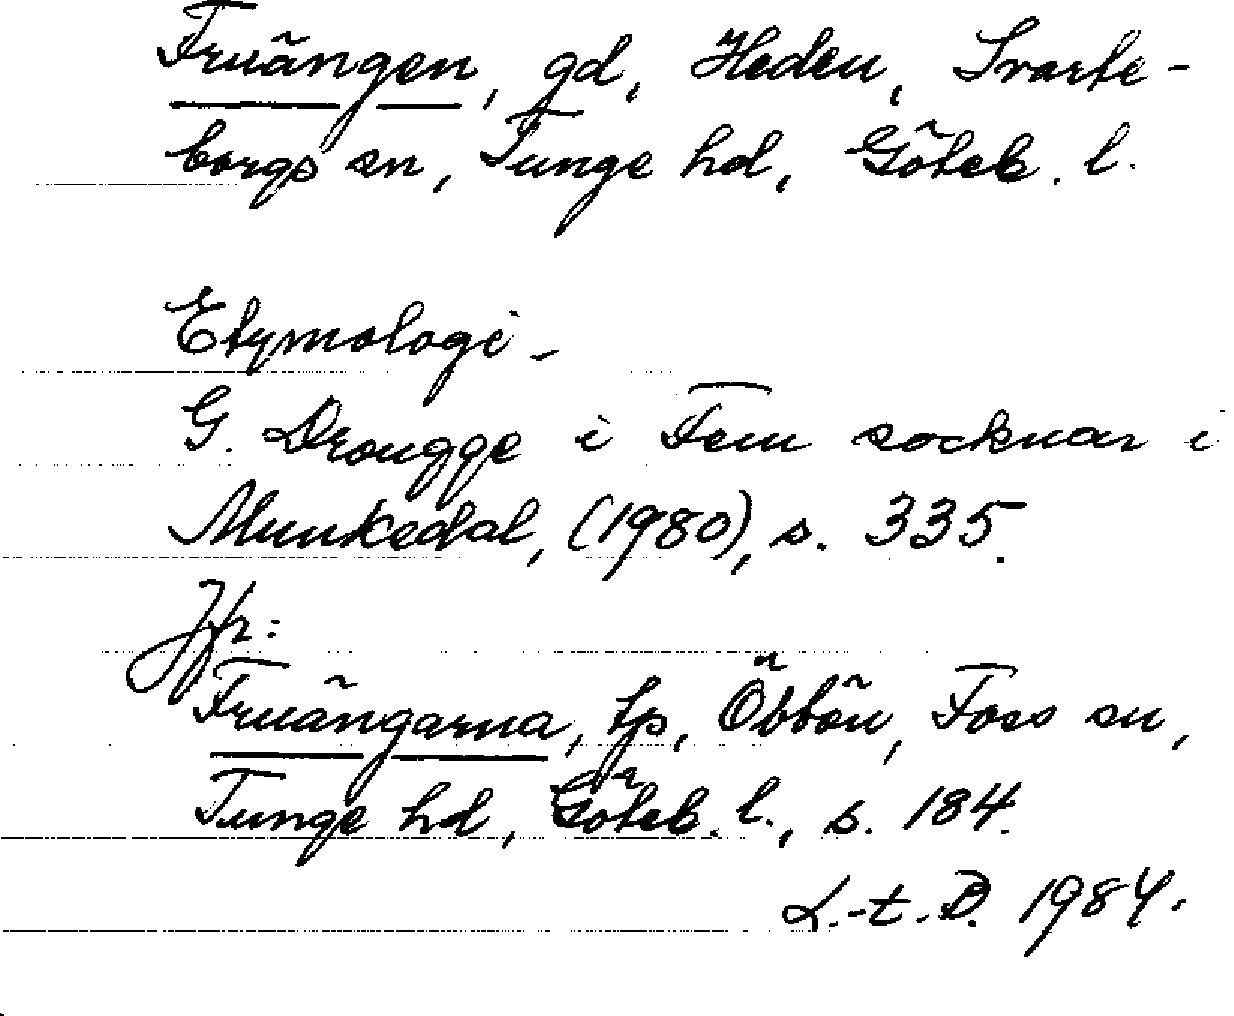 Fruängen, gd, Heden, Svarte-
borgs sn, Tunge hd, Göteb. l.
Etymologi -
G. Drougge i Fem socknar i
Munkedal, (1980), s. 335.
Jfr:
Fruängarna, tp, Öbbön, Foss sn,
Tunge hd, Göteb. l., s. 184.
L.-t. B. 1984.